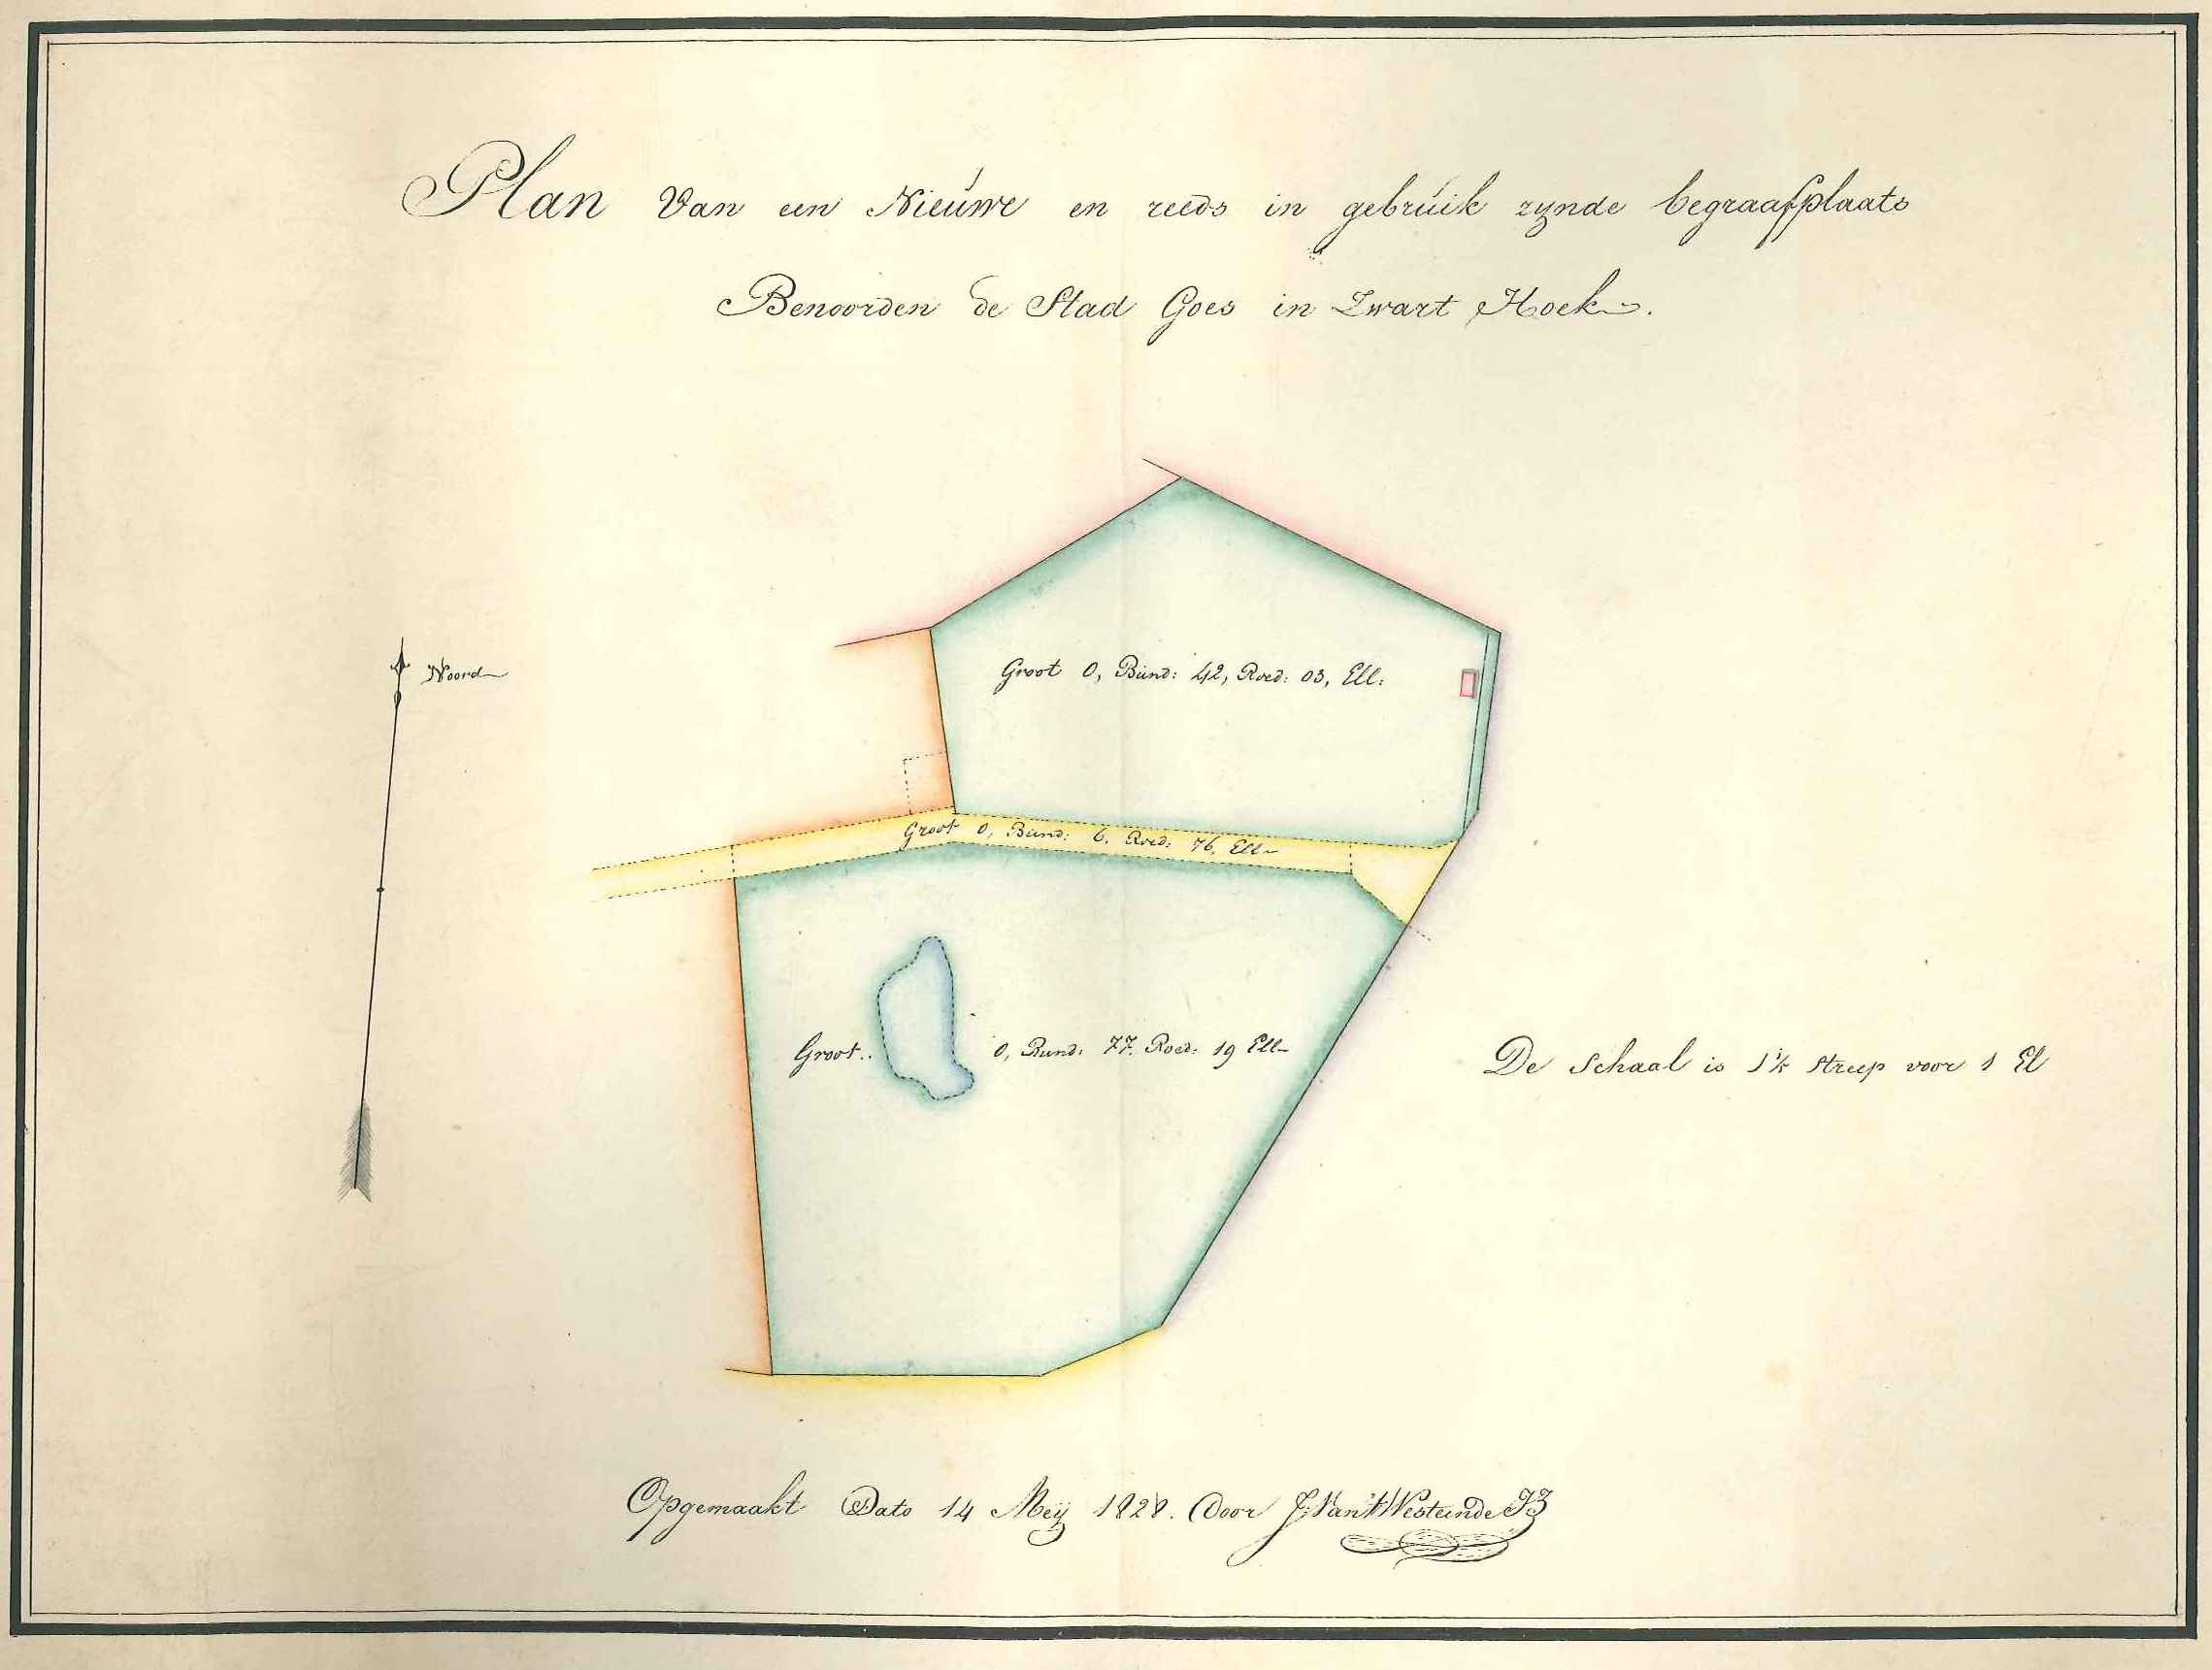 Plan Van een Nieuwe en reeds in gebruik zynde begraafplaats
Benoorden de Stad Goes in Zwart Hoek.
Noord
Groot 0, Bund: 42, Roed: 03, Ell:
Groot 0, Bund: 6, Roed: 76, Ell
Groot.. 0, Bund: 77, Roed: 19 Ell
De Schaal is 1½ Streep voor 1 El
Opgemaakt Dato 14 Meij 1828. Door J: Van 't Westeinde JZ